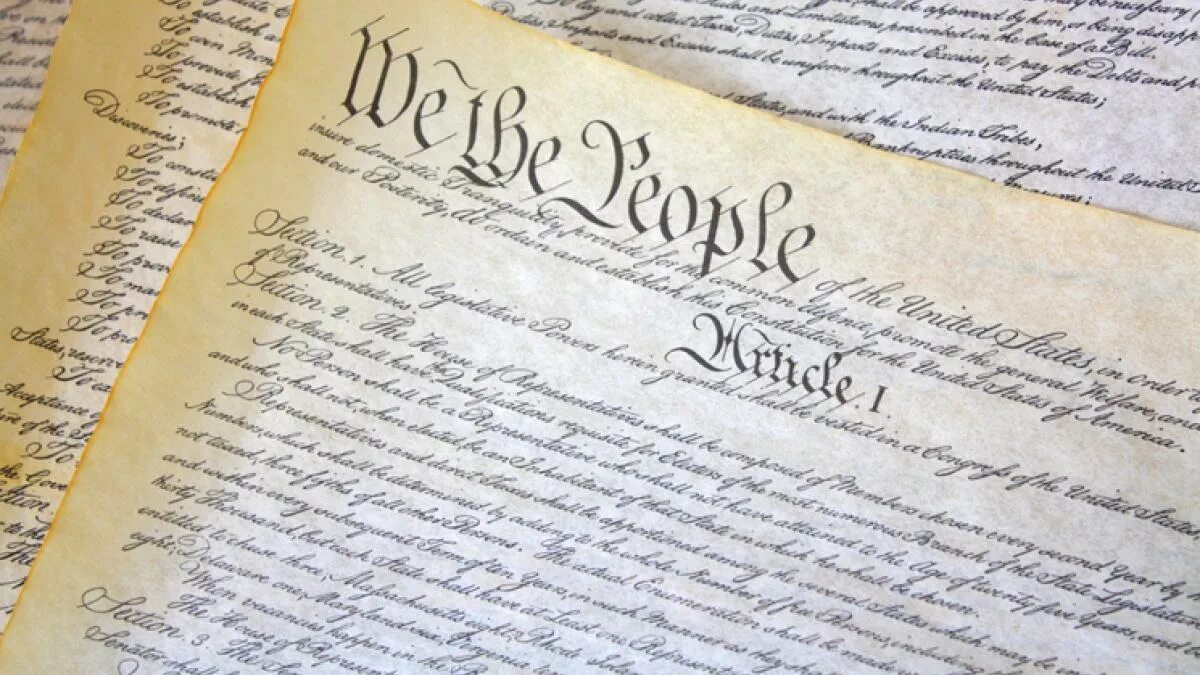 We the People of the United States, in Order
insure domestic Tranquility, provide for the common defence, promote the general Welfare, and
and our Posterity, do ordain and establish this Constitution for the United States of America.
Article. I.
Section. 1. All legislative Powers herein granted shall be vested in a Congress of the United States
of Representatives.
Section. 2. The House of Representatives shall be composed of Members chosen every second Year by
in each State shall have the Qualifications requisite for Electors of the most numerous Branch of the State Legislature
No Person shall be a Representative who shall not have attained to the Age of twenty five Years, and
and who shall not, when elected, be an Inhabitant of that State in which he shall be chosen.
Representatives and direct Taxes shall be apportioned among the several States which may be
Numbers, which shall be determined by adding to the whole Number of free Persons, including
not taxed, three fifths of all other Persons. The actual Enumeration shall be made
and within every subsequent Term of ten Years, in such Manner as they shall
thirty Thousand, but each State shall have at Least one
entitled to chuse three, Massachusetts eight, Rhode
eight, Delaware one, Maryland six, Virginia
When vacancies happen in the
The House of
Section. 3. The
Senator shall
shall be approved by him, or being
prescribed in the Case of a Bill.
Taxes, Duties, Imposts and Excises, to pay the Debts and
Imposts and Excises shall be uniform throughout the United States;
and with the Indian Tribes;
Bankruptcies throughout the United
To establish
To provide
To establish
To promote
Discoveries;
To
To
To
To raise
To
To
To
To
States,
To